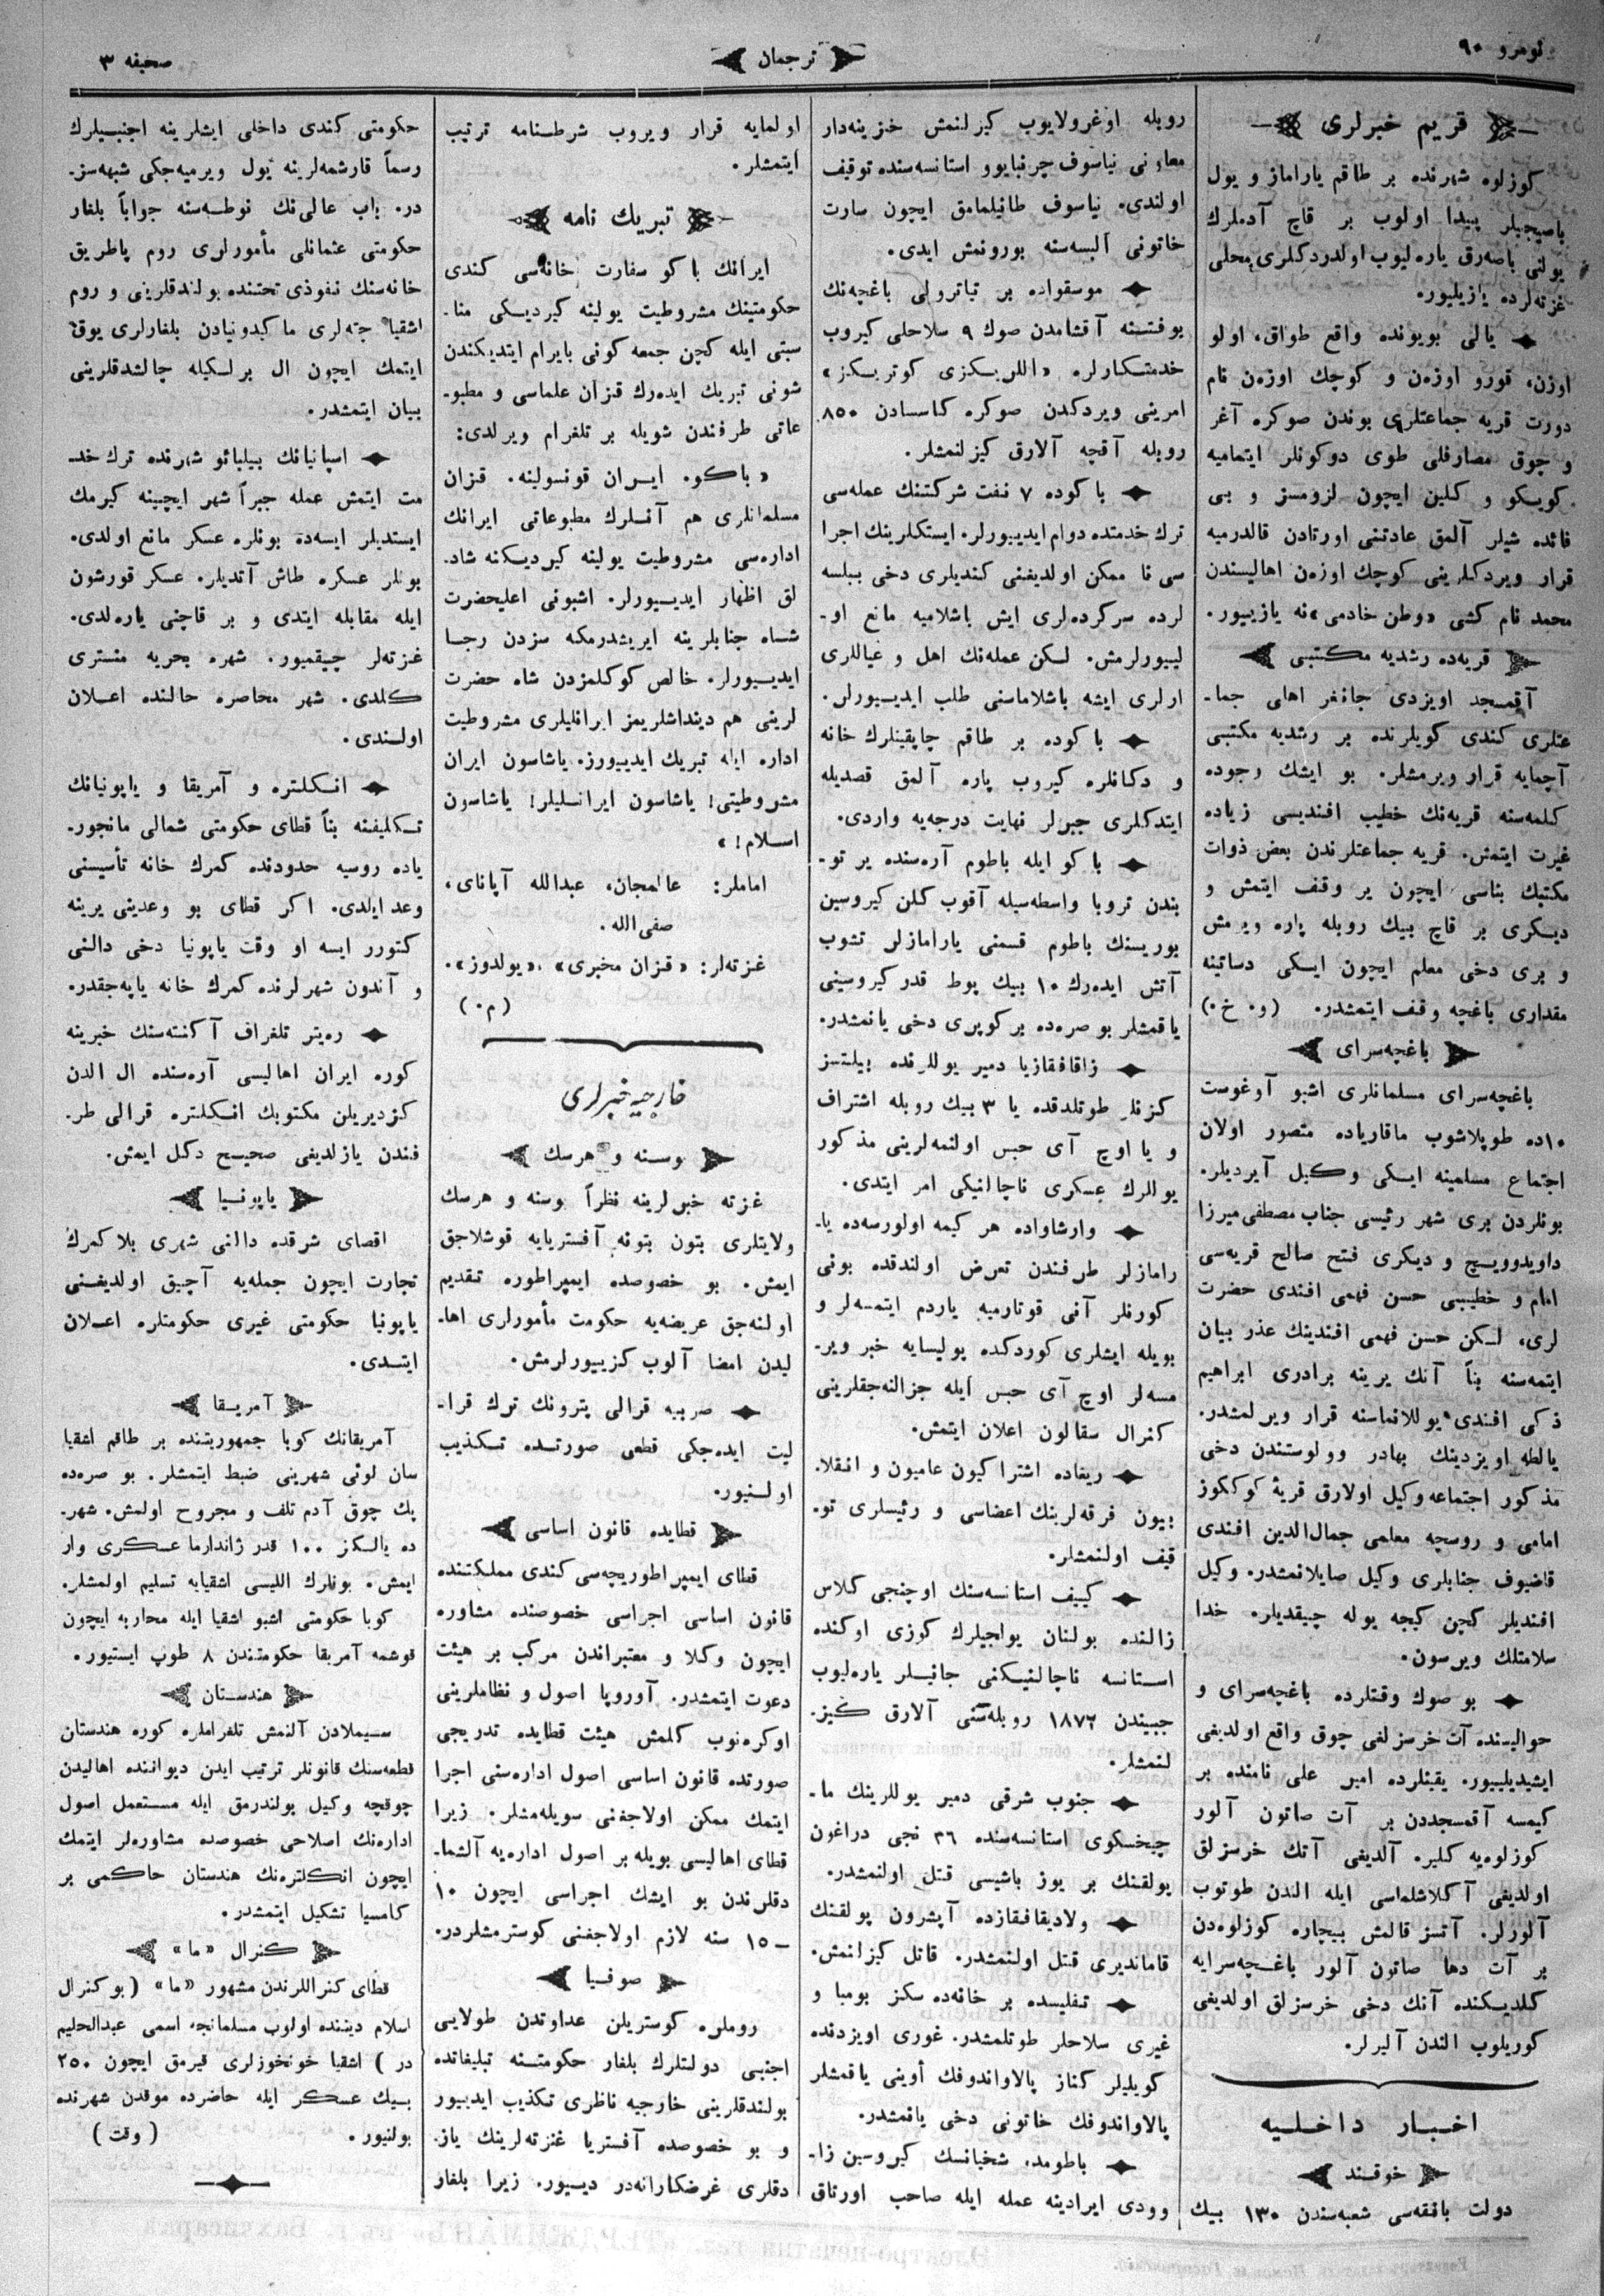 نومرو ۹۰
ترجمان
صحیفه ۳
قریم خبرلری
كوزلوه شهرنده بر طاقم یاراماز و یول
باصیجیلر پیدا اولوب بر قاچ آدملرك
یولنی باصه‌رق یاره‌لیوب اولدردكلری محلی
غزته‌لرده یازیلیور.
یالی بویونده واقع طواق، اولو
اوزن، قورو اوزه‌ن و كوچك اوزه‌ن نام
دورت قریه جماعتلری بوندن صوكره آغر
و چوق مصارفلی طوی دوكونلر ایتمامیه
كویكو و كلین ایچون لزومسز و بی
فائده شیلر آلمق عادتنی اورتادن قالدرمیه
قرار ویردكلرینی كوچك اوزه‌ن اهالیسندن
محمد نام كشی «وطن خادمی»نه یازییور.
قریه‌ده رشدیه مكتبی
آقمسجد اویزدی جانغر اهلی جما-
عتلری كندی كویلرنده بر رشدیه مكتبی
آچمایه قرار ویرمشلر. بو ایشك وجوده
كلمه‌سنه قریه‌نك خطیب افندیسی زیاده
غیرت ایتمش. قریه جماعتلرندن بعض ذوات
مكتبك بناسی ایچون یر وقف ایتمش و
دیكری بر قاچ بیك روبله پاره ویرمش
و بری دخی معلم ایچون ایكی دساتینه
مقداری باغچه وقف ایتمشدر. (و. خ.)
باغچه‌سرای
باغچه‌سرای مسلمانلری اشبو آوغوست
۱۰ده طوپلاشوب ماقاریاده متصور اولان
اجتماع مسلمینه ایكی وكیل آیردیلر.
بونلردن بری شهر رئیسی جناب مصطفی میرزا
داویدوویچ و دیكری فتح صالح قریه‌سی
امام و خطیبی حسن فهمی افندی حضرت
لری، لكن حسن فهمی افندینك عذر بیان
ایتمه‌سنه بناً آنك یرینه برادری ابراهیم
ذكی افندی یوللانماسنه قرار ویرلمشدر.
یالطه اویزدینك بهادر وولوستندن دخی
مذكور اجتماعه وكیل اولارق قریهٔ كوككوز
امامی و روسچه معلمی جمال‌الدین افندی
قاضیوف جنابلری وكیل صایلانمشدر. وكیل
افندیلر كچن كیجه یوله چیقدیلر. خدا
سلامتلك ویرسون.
بو صوك وقتلرده باغچه‌سرای و
حوالیسنده آت خرسزلغی چوق واقع اولدیغی
ایشیدیلییور. یقینلرده امیر علی نامنده بر
كیمسه آقمسجددن بر آت صاتون آلور
كوزلوه‌یه كلیر. آلدیغی آتك خرسزلق
اولدیغی آكلاشلماسی ایله الندن طوتوب
آلورلر. آتسز قالمش بیچاره كوزلوه‌دن
بر آت دها صاتون آلور باغچه‌سرایه
كلدیكنده آنك دخی خرسزلق اولدیغی
كوریلوب الندن آلیرلر.
اخبار داخلیه
خوقند
دولت بانقه‌سی شعبه‌سندن ۱۳۰ بیك
روبله اوغرولایوب كیزلنمش خزینه‌دار
معاونی نیاسوف چرنیایوو استانسه‌سنده توقیف
اولندی. نیاسوف طانیلمامق ایچون سارت
خاتونی البسه‌سنه بورونمش ایدی.
موسقواده بر تیاترولی باغچه‌نك
بوفتنه آقشامدن صوك ۹ سلاحلی كیروب
خدمتكارلره «اللریكزی كوتریكز»
امرینی ویردكدن صوكره كاسسادن ۸۵۰
روبله آقچه آلارق كیزلنمشلر.
باكوده ۷ نفت شركتنك عمله‌سی
ترك خدمتده دوام ایدییورلر. ایستكلرینك اجرا
سی نا ممكن اولدیغینی كندیلری دخی بیلسه
لرده سركرده‌لری ایش باشلامیه مانع او-
لییورلرمش. لكن عمله‌نك اهل و عیاللری
ارلری ایشه باشلاماسنی طلب ایدییورلر.
باكوده بر طاقم چاپقینلرك خانه
و دكانلره كیروب پاره آلمق قصدیله
ایتدكلری جبرلر نهایت درجه‌یه واردی.
باكو ایله باطوم آره‌سنده یر تو-
بندن تروبا واسطه‌سیله آقوب كلن كیروسین
بوریسنك باطوم قسمنی یارامازلر تشوب
آتش ایده‌رك ۱۰ بیك پوط قدر كیروسینی
یاقمشلر بو صره‌ده بر كوپری دخی یانمشدر.
زاقافقازیا دمیر یوللرنده بیلتسز
كزنلر طوتلدقده یا ۳ بیك روبله اشتراف
و یا اوچ آی حبس اولنمه‌لرینی مذكور
یوللرك عسكری ناچالنیكی امر ایتدی.
وارشاواده هر كیمه اولورسه‌ده یا-
رامازلر طرفندن تعرض اولندقده بونی
كورنلر آنی قوتارمیه یاردم ایتمسه‌لر و
بویله ایشلری كوردكده پولیسایه خبر ویر-
مسه‌لر اوچ آی حبس ایله جزالنه‌جقلرینی
كنرال سقالون اعلان ایتمش.
ریغاده اشتراكیون عامیون و انقلا-
بیون فرقه‌لرینك اعضاسی و رئیسلری تو-
قیف اولنمشلر.
كییف استانسه‌سنك اوچنجی كلاس
زالنده بولنان یولجیلرك كوزی اوكنده
استانسه ناچالنیكنی جانیلر یاره‌لیوب
جیبندن ۱۸۷۲ روبله‌سنی آلارق كیز-
لنمشلر.
جنوب شرقی دمیر یوللرینك ما-
چیخسكوی استانسه‌سنده ۳٦ نجی دراغون
پولقنك بر یوز باشیسی قتل اولنمشدر.
ولادیقافقازده آپشرون پولقنك
قاماندیری قتل اولنمشدر. قاتل كیزلنمش.
تفلیسده بر خانه‌ده سكز بومبا و
غیری سلاحلر طوتلمشدر. غوری اویزدنده
كویلیلر كناز پالاواندوفك أوینی یاقمشلر
پالاواندوفك خاتونی دخی یانمشدر.
باطومده شخیانسك كیروسین زا-
وودی ایرادینه عمله ایله صاحب اورتاق
اولمایه قرار ویروب شرطنامه ترتیب
ایتمشلر.
تبریك نامه
ایرانك باكو سفارت خانه‌سی كندی
حكومتینك مشروطیت یولینه كیردیكی منا-
سبتی ایله كچن جمعه كونی بایرام ایتدیكندن
شونی تبریك ایده‌رك قزان علماسی و مطبو-
عاتی طرفندن شویله بر تلغرام ویرلدی:
«باكو. ایران قونسولینه. قزان
مسلمانلری هم آنلرك مطبوعاتی ایرانك
اداره‌سی مشروطیت یولینه كیردیكنه شاد-
لق اظهار ایدییورلر. اشبونی اعلیحضرت
شاه جنابلرینه ایریشدرمكه سزدن رجا
ایدییورلر. خالص كوكلمزدن شاه حضرت
لرینی هم دینداشلریمز ایرانلیلری مشروطیت
اداره ایله تبریك ایدییورز. یاشاسون ایران
مشروطیتی! یاشاسون ایرانلیلر! یاشاسون
اسلام!»
اماملر: عالمجان، عبدالله آپانای،
صفی الله.
غزته‌لر: «قزان مخبری»، «یولدوز».
(م.)
خارجیه خبرلری
بوسنه و هرسك
غزته خبرلرینه نظراً بوسنه و هرسك
ولایتلری بتون بتونه آفستریایه قوشلاجق
ایمش. بو خصوصده ایمپراطوره تقدیم
اولنه‌جق عریضه‌یه حكومت مأمورلری اها-
لیدن امضا آلوب كزییورلرمش.
صربیه قرالی پترونك ترك قرا-
لیت ایده‌جكی قطعی صورتده تكذیب
اولنیور.
قطایده قانون اساسی
قطای ایمپراطوریچه‌سی كندی مملكتنده
قانون اساسی اجراسی خصوصنده مشاوره
ایچون وكلا و معتبراندن مركب بر هیئت
دعوت ایتمشدر. آوروپا اصول و نظاملرینی
اوكره‌نوب كلمش هیئت قطایده تدریجی
صورتده قانون اساسی اصول اداره‌سنی اجرا
ایتمك ممكن اولاجغنی سویله‌مشلر. زیرا
قطای اهالیسی بویله بر اصول اداره‌یه آلشما-
دقلرندن بو ایشك اجراسی ایچون ۱۰
— ۱۵ سنه لازم اولاجغنی كوسترمشلردر.
صوفیا
روملره كوستریلن عداوتدن طولایی
اجنبی دولتلرك بلغار حكومتنه تبلیغاتده
بولندقلرینی خارجیه ناظری تكذیب ایدییور
و بو خصوصده آفستریا غزته‌لرینك یاز-
دقلری غرضكارانه‌در دییور. زیرا بلغار
حكومتی كندی داخلی ایشلرینه اجنبیلرك
رسماً قارشمه‌لرینه یول ویرمیه‌جكی شبهه‌سز-
در. باب عالی‌نك نوطه‌سنه جواباً بلغار
حكومتی عثمانلی مأمورلری روم پاطریق
خانه‌سنك نفوذی تحتنده بولندقلرینی و روم
اشقیا جته‌لری ماكیدونیادن بلغارلری یوق
ایتمك ایچون ال برلكیله چالشدقلرینی
بیان ایتمشدر.
اسپانیانك بیلبائو شهرنده ترك خد-
مت ایتمش عمله جبراً شهر ایچینه كیرمك
ایستدیلر ایسه‌ده بونلره عسكر مانع اولدی.
بونلر عسكره طاش آتدیلر. عسكر قورشون
ایله مقابله ایتدی و بر قاچنی یاره‌لدی.
غزته‌لر چیقمیور. شهره بحریه منستری
كلدی. شهر محاصره حالنده اعلان
اولندی.
انكلتره و آمریقا و یاپونیانك
تكلیفنه بناً قطای حكومتی شمالی مانجور-
یاده روسیه حدودنده كمرك خانه تأسیسنی
وعد ایلدی. اكر قطای بو وعدینی یرینه
كتورر ایسه او وقت یاپونیا دخی دالنی
و آندون شهرلرنده كمرك خانه یاپه‌جقدر.
ره‌یتر تلغراف آكنته‌سنك خبرینه
كوره ایران اهالیسی آره‌سنده ال الدن
كزدیریلن مكتوبك انكلتره قرالی طر-
فندن یازلدیغی صحیح دكل ایمش.
یاپونیا
اقصای شرقده دالنی شهری بلا كمرك
تجارت ایچون جمله‌یه آچیق اولدیغنی
یاپونیا حكومتی غیری حكومتلره اعلان
ایتدی.
آمریقا
آمریقانك كوبا جمهوریتنده بر طاقم اشقیا
سان لوئی شهرینی ضبط ایتمشلر. بو صره‌ده
پك چوق آدم تلف و مجروح اولمش. شهر-
ده یالكز ۱۰۰ قدر ژاندارما عسكری وار
ایمش. بونلرك اللیسی اشقیایه تسلیم اولمشلر.
كوبا حكومتی اشبو اشقیا ایله محاربه ایچون
قوشمه آمریقا حكومتندن ۸ طوپ ایستیور.
هندستان
سیملادن آلنمش تلغراملره كوره هندستان
قطعه‌سنك قانونلر ترتیب ایدن دیواننده اهالیدن
چوقچه وكیل بولندرمق ایله مستعمل اصول
اداره‌نك اصلاحی خصوصده مشاوره‌لر ایتمك
ایچون انكلتره‌نك هندستان حاكمی بر
كامسیا تشكیل ایتمشدر.
كنرال «ما»
قطای كنراللرندن مشهور «ما» (بو كنرال
اسلام دیننده اولوب مسلمانجه اسمی عبدالحلیم
در) اشقیا خونخوزلری قیرمق ایچون ۲۵۰
بیك عسكر ایله حاضرده موقدن شهرنده
بولنیور. (وقت)